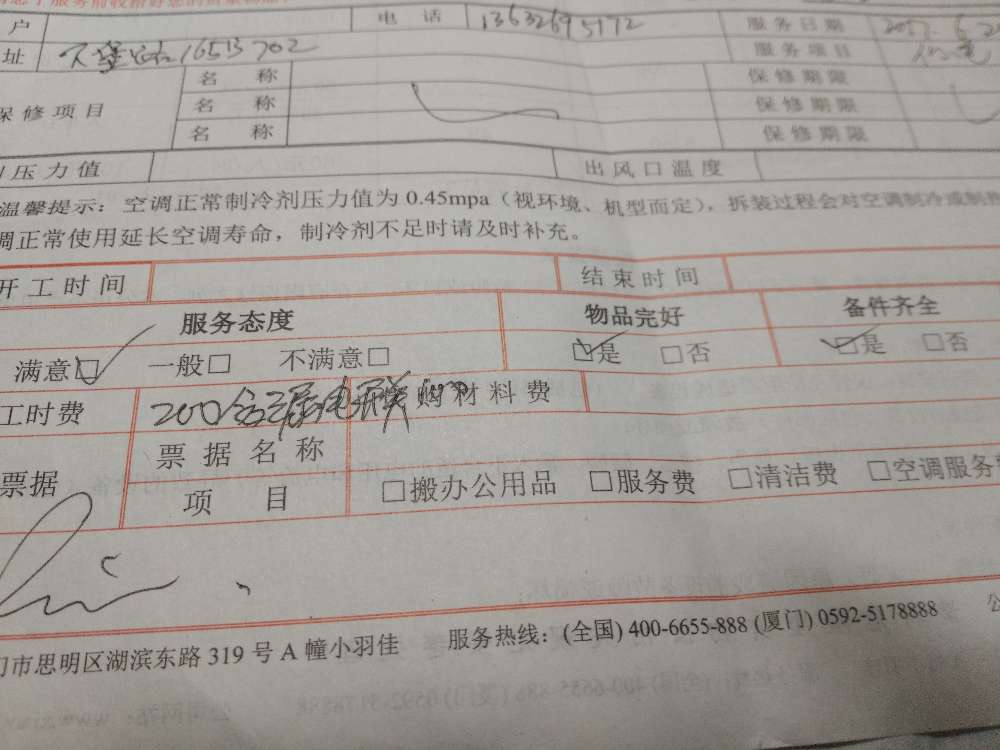 户 电话 13632695172 服务日期
址 1651B 702 服务项目
名称 保修期限
保修项目 名称 保修期限
名称 保修期限
压力值 出风口温度
温馨提示：空调正常制冷剂压力值为 0.45mpa（视环境、机型而定），拆装过程会对空调制冷或制热
调正常使用延长空调寿命，制冷剂不足时请及时补充。
开工时间 结束时间
服务态度 物品完好 备件齐全
满意□ 一般□ 不满意□ □是 □否 □是 □否
工时费 200 购材料费
票据 票据名称
项目 □搬办公用品 □服务费 □清洁费 □空调服务费
门市思明区湖滨东路 319 号 A 幢小羽佳 服务热线：(全国) 400-6655-888 (厦门) 0592-5178888 公